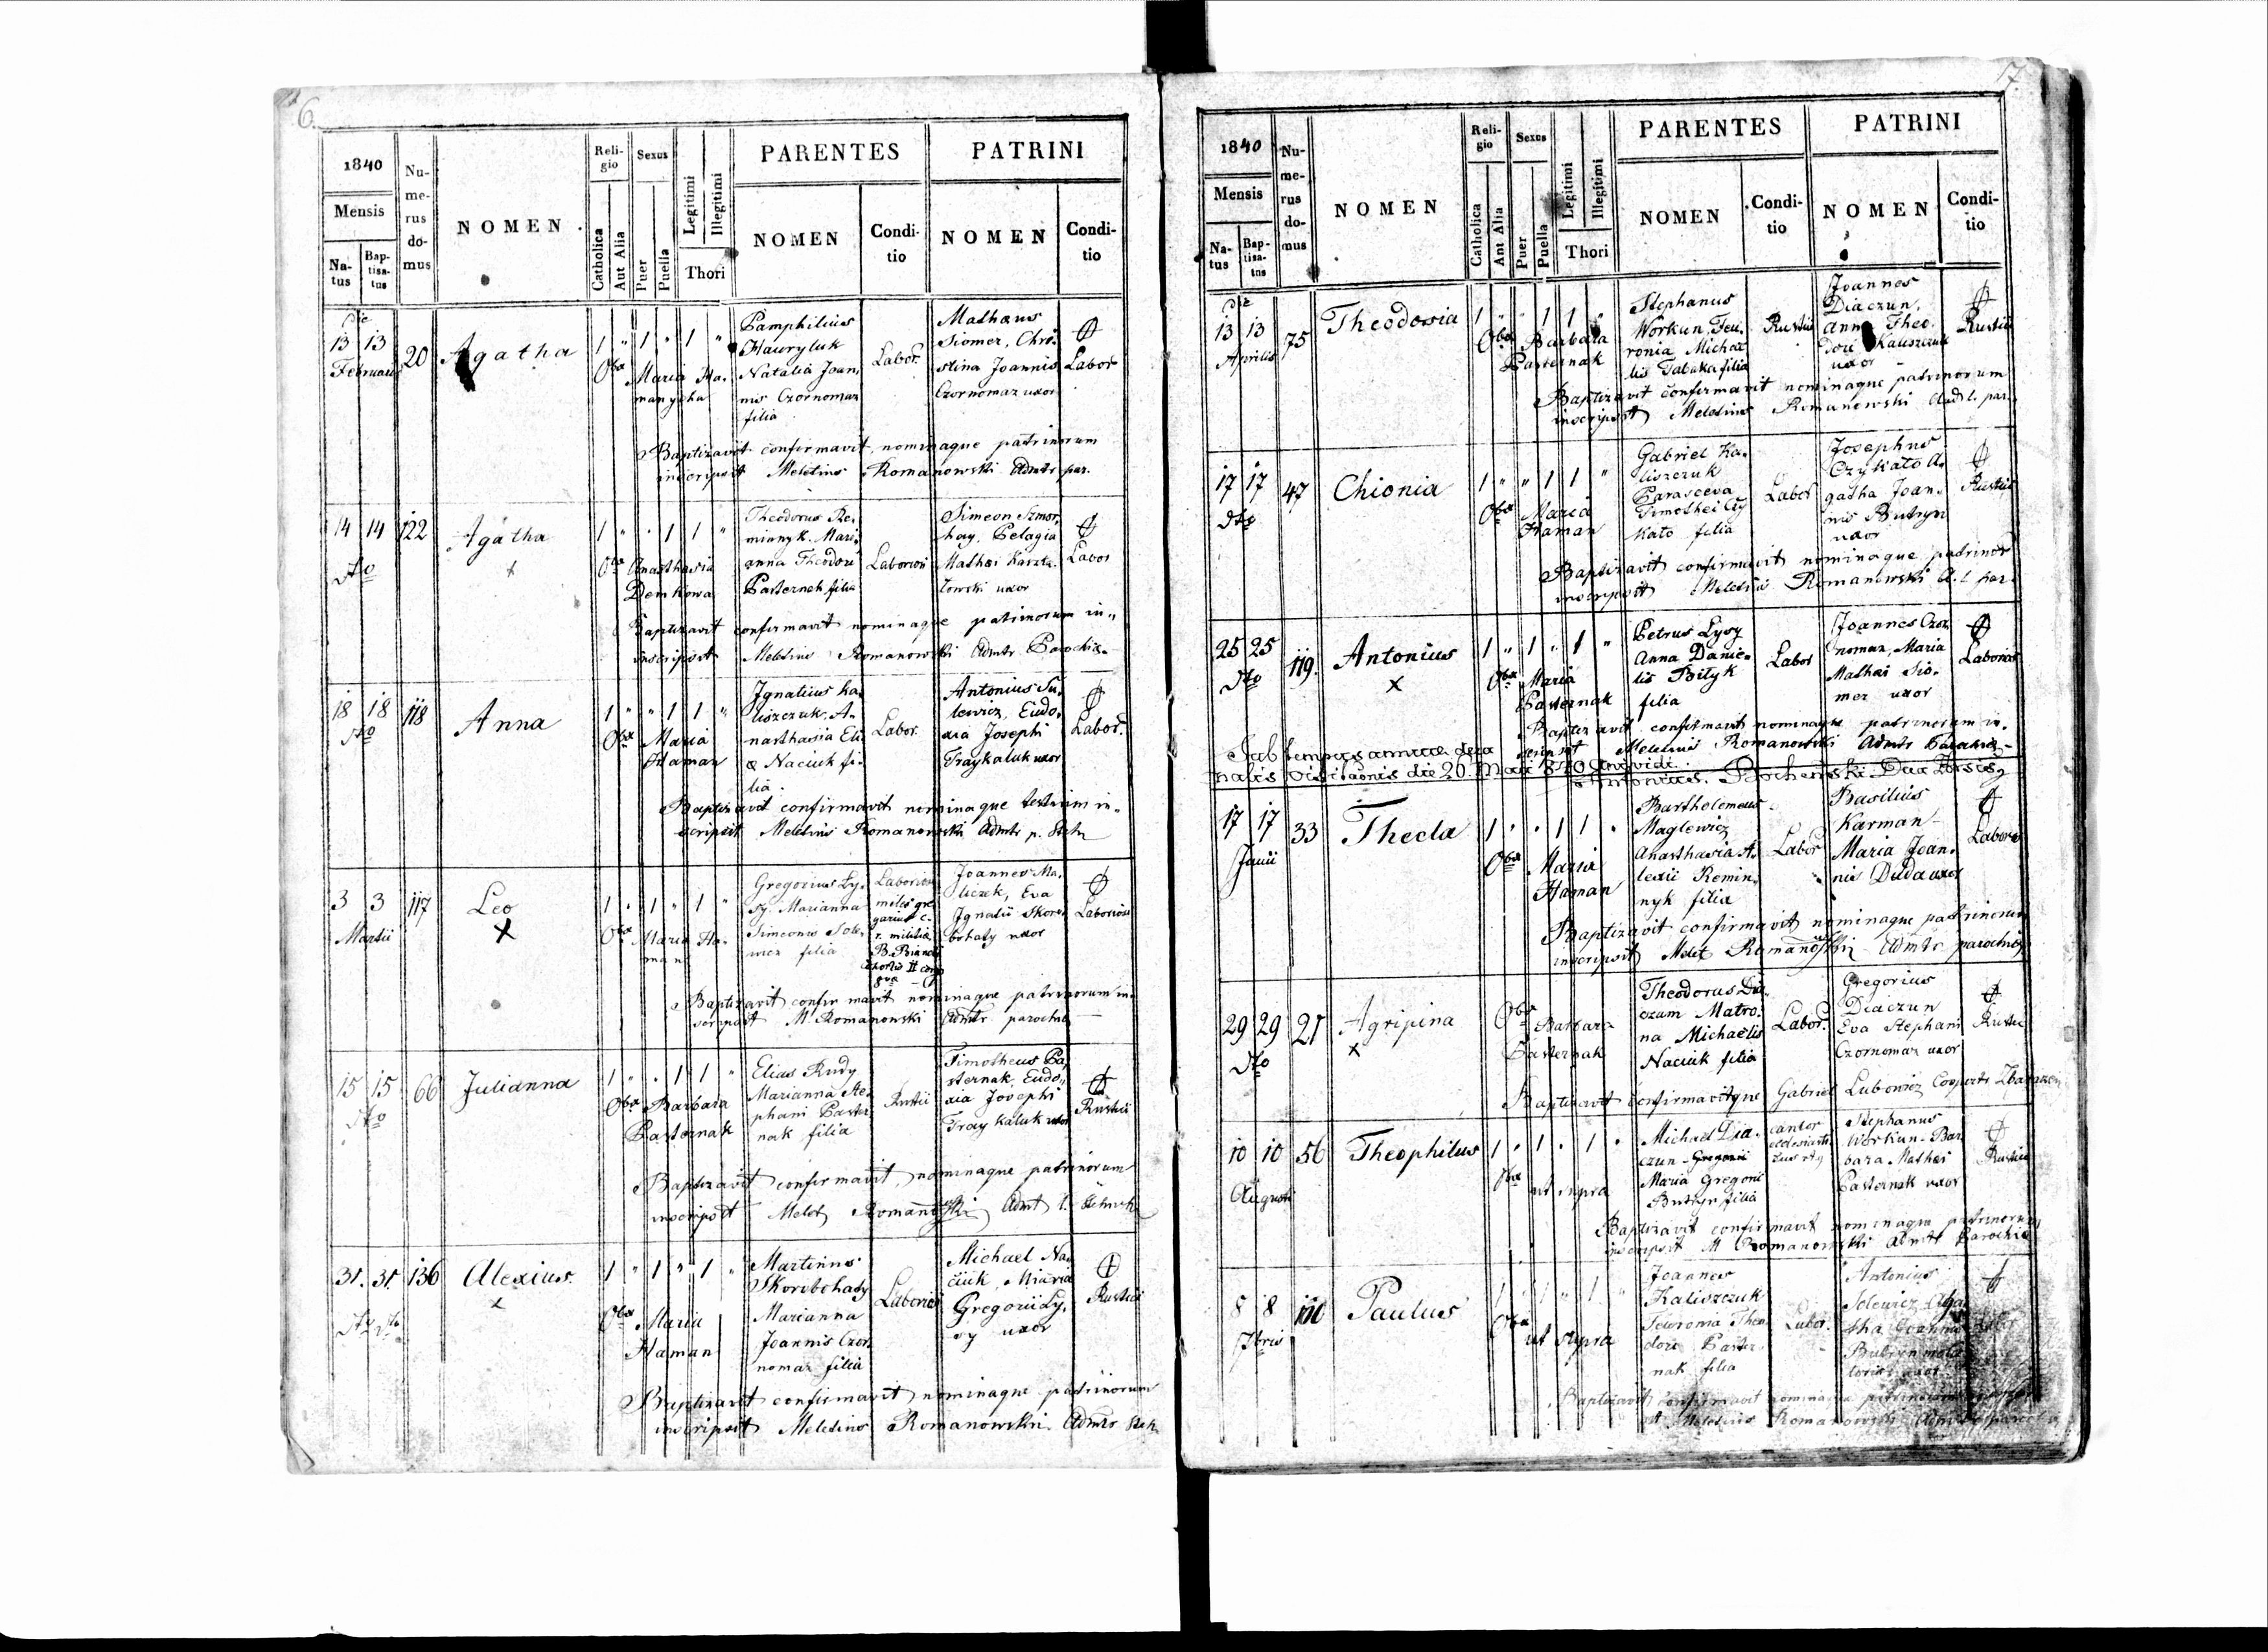 6.
1840
Mensis
Na-
tus
Bap-
tisa-
tus
Nu-
me-
rus
do-
mus
NOMEN
Reli-
gio
Catholica
Aut Alia
Sexus
Puer
Puella
Legitimi
Illegitimi
Thori
PARENTES
NOMEN
Condi-
tio
PATRINI
NOMEN
Condi-
tio
die
13 13 20 Agatha 1 " 1 " 1 "
Februarii
Maria Ha-
manycha
Pamphilius
Hauryluk
Natalia Joan,
nis Czornomaz
filia
Labor.
Mathaus
Siomer, Chri-
stina Joannis
Czornomaz uxor
Labor
Baptizavit confirmavit nominaque patrinorum
inscripsit Meletius Romanowski Admtr par.
14 14 122 Agatha 1 " . 1 1 "
dto
x
Anasthasia
Demkowa
Theodorus Re,
mianyk. Mari,
anna Theodori
Pasternak filia
Laborios
Simeon
Pelagia
Mathei
uxor
Labor
Baptizavit confirmavit nominaque patrinorum in,,
inscripsit Meletius Romanowski Admtr Parochia.
18 18 118 Anna 1 " " 1 1 "
dto
Maria
Haman
Ignatius Ka,
liszczuk. A-
nasthasia Eli
æ Naciuk fi-
lia.
Labor.
Antonius Su,
lewicz, Eudo,
xia Josephi
Traykaluk uxor
Labor.
Baptizavit confirmavit nominaque testium in,,
scripsit Meletius Romanowski Admtr p.
3 3 117 Leo 1 . 1 " 1 "
Martii
x
Maria Ha-
man
Gregorius Ly,
sy. Marianna
Simeonis Sole,
wicz filia
Laborios
miles gre
garius c.
r. militia
B. Bianchi
Joannes Ma,
liczek, Eva
Ignatii Skoro
bohaty uxor
Laboriosi
Baptizavit confirmavit nominaque patrinorum in,
scripsit M. Romanowski Admtr parochiæ
15 15 66 Julianna 1 " . 1 1 "
dto
Barbara
Pasternak
Elias Rudy
Marianna Ste,
phani Paster
nak filia
Rustici
Timotheus Pa,
sternak, Eudo,,
xia Josephi
Traykaluk uxor
Rustici
Baptizavit confirmavit, nominaque patrinorum
inscripsit Melet Romanowski Admt l.
31. 31. 136 Alexius. 1 " 1 " 1 "
x
Maria
Haman
Martinus
Skorobohaty
Marianna
Joannis Czor,
nomaz filia
Laborios
Michael Na,
ciuk, Maria
Gregorii Ly,
sy uxor
Rustici
Baptizavit confirmavit nominaque patrinorum
inscripsit Meletius Romanowski. Admtr
7.
1840
Mensis
Na-
tus
Bap-
tisa-
tus
Nu-
me-
rus
do-
mus
NOMEN
Reli-
gio
Catholica
Aut Alia
Sexus
Puer
Puella
Legitimi
Illegitimi
Thori
PARENTES
NOMEN
Condi-
tio
PATRINI
NOMEN
Condi-
tio
die
13 13 75 Theodosia 1 " " 1 1 "
Aprilis
Barbara
Pasternak
Stephanus
Workun, Feu,
ronia Michae
lis Tabaka filia
Rustici
Joannes
Diaczun,
Anna Theo.
dori Kaliszczuk
uxor
Rustici
Baptizavit confirmavit nominaque patrinorum
inscripsit Meletius Romanowski Adm l. par.
17 17 47 Chionia 1 " " 1 1 "
dto
Maria
Haman
Gabriel Ka,
liszczuk
Parasceva
Timothei Czy
kato filia
Labor
Josephus
Czykato A,
gatha Joan,
nis Butryn
uxor
Rustici
Baptizavit confirmavit nominaque patrinor
inscripsit Meletius Romanowski A. l par.
25 25 119. Antonius 1 " 1 " 1 "
dto
x
Maria
Pasternak
Petrus Lysy
Anna Danie-
lis Bilyk
filia
Labor
Joannes Czor
nomaz, Maria
Mathei Sio-
mer uxor
Laborios
Baptizavit confirmavit nominaque patrinorum in,
scripsit Meletius Romanowski Admtr Parochiæ -
Sub tempus amicæ deca
nalis visitaonis die 20. Maii 840
17 17 33 Thecla 1 . . 1 1 .
Junii
Maria
Haman
Bartholomeus
Maglewicz
Anasthasia A,
lexii Remin,
nyk filia
Labor
Basilius
Karman -
Maria Joan,
nis Duda uxor
Labores
Baptizavit confirmavit nominaque patrinorum
inscripsit Melet Romanowski Admtr parochiæ
29 29 21 Agripina
dto
x
Barbara
Pasternak
Theodorus Dia,
czum Matro,
na Michaelis
Naciuk filia
Labor.
Gregorius
Diaczun
Eva Stephani
Czornomaz uxor
Rustici
Baptizavit confirmavitque Gabriel Lubowicz Cooperatr
10 10 56 Theophilus 1 . 1 . 1 .
Augusti
ut supra
Michael Dia-
czun - Gregorii
Maria Gregorii
Butryn filia
cantor
Stephanus
Workun - Bar
bara Mathei
Pasternak uxor
Rustici
Baptizavit confirmavit nominaque patrinorum
inscripsit M Romanowski Admtr Parochiæ
8 8 Paulus
ut supra
Joannes
Kaliszczuk
Theo
dori Paster
nak filia
Labor.
Antonius
Solewicz Aga
tha Joannis
uxor
Baptizavit confirmavit nominaque
Meletius Romanowski